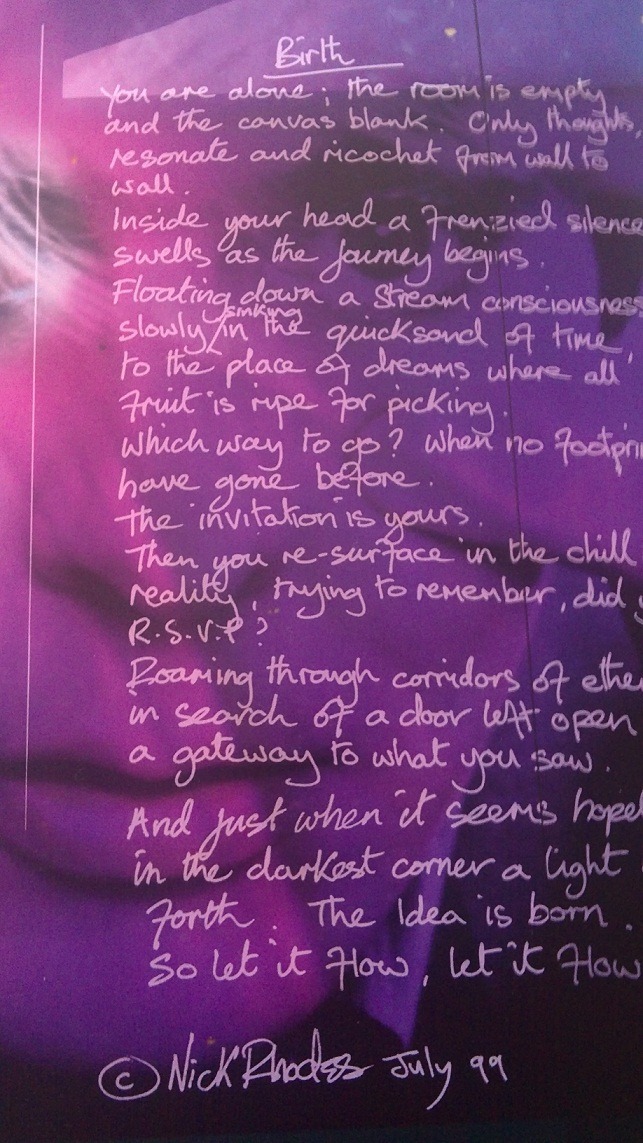 Birth
You are alone; the room is empty
and the canvas blank. Only thoughts,
resonate and ricochet from wall to
wall.
Inside your head a frenzied silence
swells as the journey begins.
Floating down a stream consciousness
slowly sinking in the quicksand of time,
to the place of dreams where all
fruit is ripe for picking.
Which way to go? When no footpri
have gone before.
The invitation is yours.
Then you re-surface in the chill
reality, trying to remember, did y
R.S.V.P?
Roaming through corridors of ethe
in search of a door left open
a gateway to what you saw.
And just when it seems hopel
in the darkest corner a light
forth. The Idea is born.
So let it flow, let it flow
© Nick Rhodes July 99